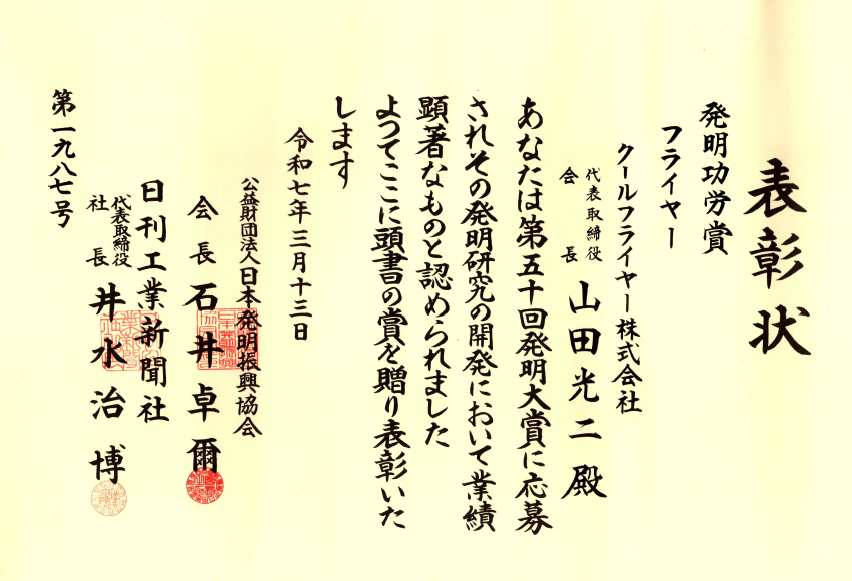 表彰状
発明功労賞
フライヤー
クールフライヤー株式会社
代表取締役
会長
山田光二殿
あなたは第五十回発明大賞に応募
されその発明研究の開発において業績
顕著なものと認められました
よつてここに頭書の賞を贈り表彰いた
します
令和七年三月十三日
公益財団法人日本発明振興協会
会長石井卓爾
日刊工業新聞社
代表取締役
社長
井水治博
第一九八七号